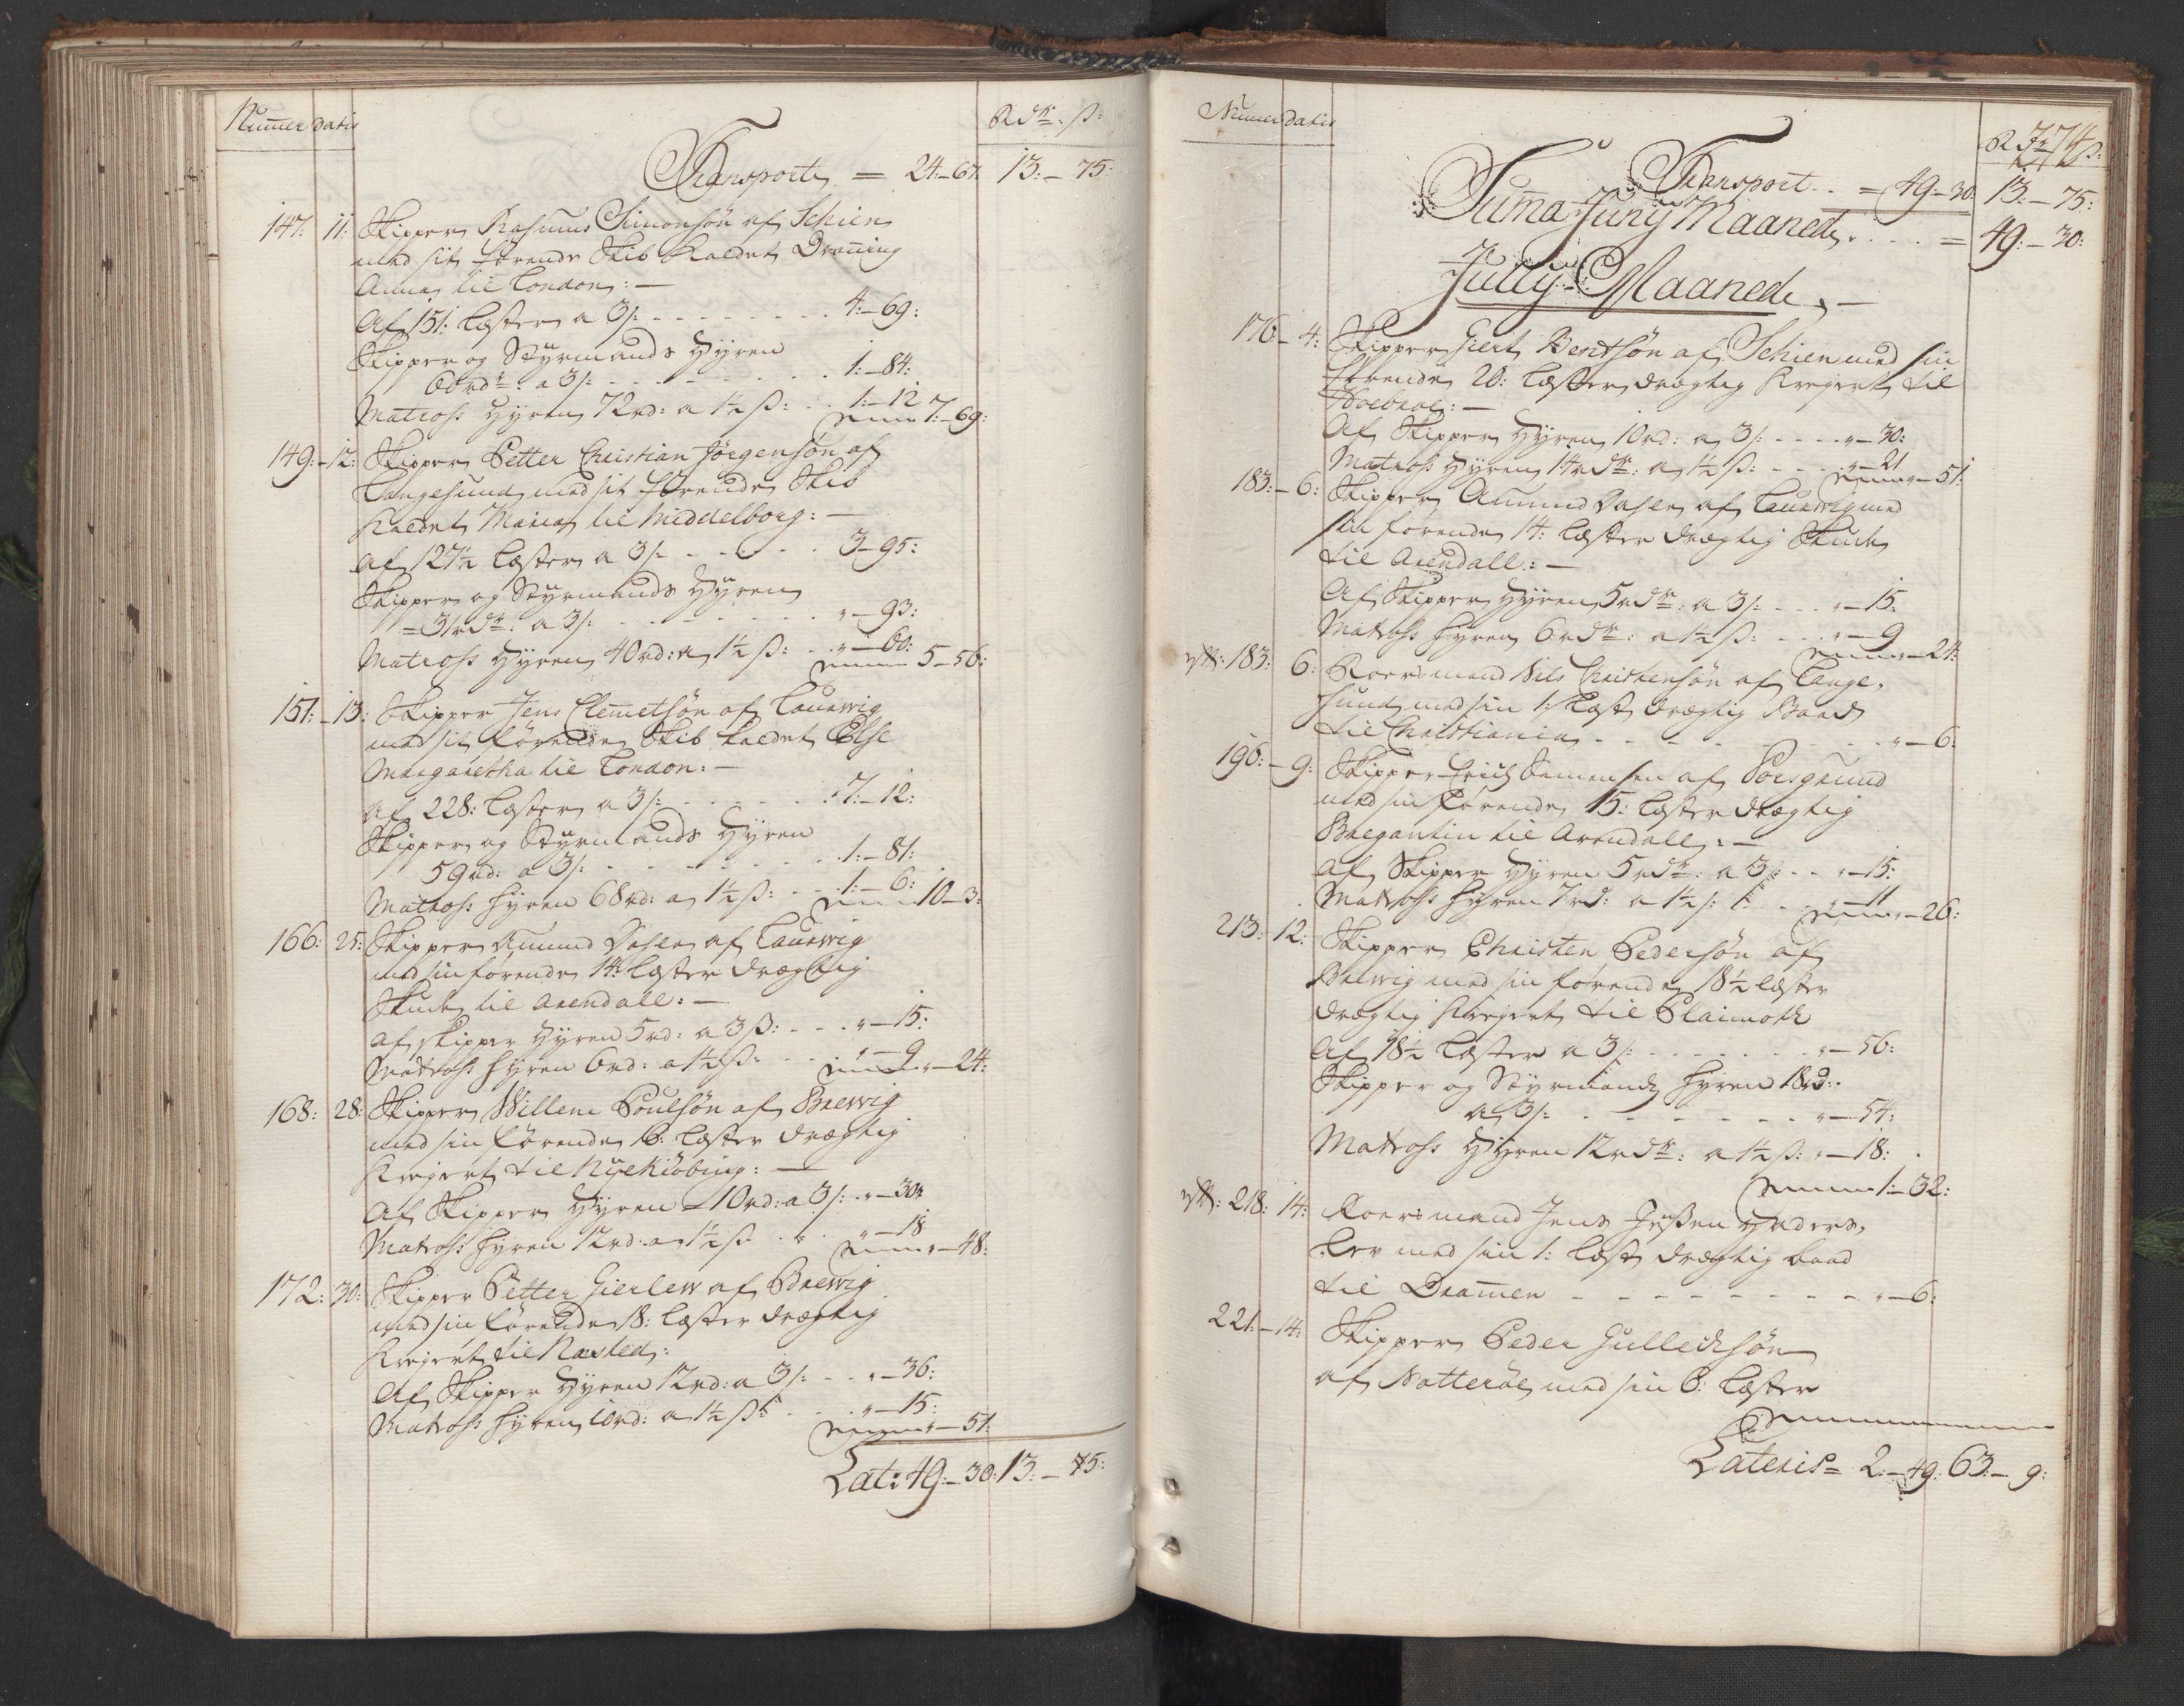 Numer datis Rdr: ß:
Transporte = 24-67. 13:-75:
147: 11: Skipper Rasmus Simonsøn af Schien
med sit førende Skib Kaldet Droning
Anna til London: —
Af 151: Læster a 3/: - - - - 4:-69:
Skipper og Styrmands Hyren
60 rdr: a 3/: - - - - 1:-84:
Matross Hyren 72 rd: a 1½ ß: - - 1:-12 7:-69:
149:-12: Skipper Petter Christian Jørgensøn af
Langesund med sit førende Skib
Kaldet Maria til Middelborg: —
Af 127½ Læster a 3/: - - - - 3-95:
Skipper og Styrmands Hyren
=31 rdr: a 3/: - - - - „-93:
Matross Hyren 40 rd: a 1½ ß: - „-60: 5-56:
151:-13: Skipper Jens Clemetsøn af Laurwig
med sit førende Skib kaldet Else
Margaretha til London: —
Af 228: Læster a 3/: - - - - 7:-12:
Skipper og Styrmands Hyren
59 rd: a 3/: - - - - 1:-81:
Matross Hyren 68 rd: a 1½ ß: - - 1:-6: 10-3:
166: 25: Skipper Amund Dahle af Laurwig
med sin førende 14: Læster drægtig
Skude til Arendall: —
Af skipper Hyren 5 rd: a 3 ß: - - „-15:
Matross Hyren 6 rd: a 1½ ß: - - „-9 „-24:
168: 28: Skipper Willem Poulsøn af Brewig
med sin førende 16: Læster drægtig
Krejert til Nyekiöbing: —
Af Skipper Hyren = 10 rd: a 3/: „-30
Matross Hyren 12 rd: a 1½ ß - „-18 „-48:
172: 30: Skipper Petter Gierlew af Brewig
med sin førende 18: Læster drægtig
Krejert til Nasted:
Af Skipper Hyren 12 rd: a 3/: - - „-36:
Matross Hyren 10 rd: a 1½ ß - - „-15: „-51:
Lat: 49:-30: 13:-75:
Numer datis R ß:
374
Transport - - = 49-30. 13:-75:
Suma Juny Maaned - - - = 49:-30:
July Maaned —
176-4: Skipper Giert Bentsøn af Schien med sin
førende 20: Læster drægtig Krejert til
Holbech: —
Af Skipper Hyren 10 rd: a 3/: - - - „-30:
Matross Hyren 14 rdr: a 1½ ß: - - „-21 „-51:
183:-6: Skipper Amund Dahle af Laurwig med
sin førende 14: Læster drægtig Skude
til Arendall: —
Af Skipper Hyren 5 rdr: a 3/: - - „-15:
Matross Hyren 6 rdr: a 1½ ß: - - „-9 „-24:
183: 6: Roersmand Nils Christensøn af Lange-
sund med sin 1: Læst drægtig Baad
til Christiania - - - - „-6:
196:-9: Skipper Erich Semensen af Porsgrund
med sin førende 15: Læster drægtig
Bregantin til Arendall: —
Af Skipper Hyren 5 rdr: a 3/: - - „-15:
Matross Hyren 7 rd: a 1½ ß: - - „-11 „-26:
213: 12: Skipper Christen Pedersøn af
Brewig med sin førende 18½ Læster
drægtig Krejert til Plaimoth
Af 18½ Læster a 3/: - - - - „-56:
Skipper og Styrmands Hyren 18 rd:
a 3/: - - - - „-54:
Matross Hyren 12 rdr: a 1½ ß: „-18:
1:-32:
218: 14: Roersmand Jens Jenßen
med sin 1: Læst drægtig baad
til Dramen - - - - „-6:
221:-14: Skipper Peder Gullichsøn
af Notterøe med sin 6: Læster
Lateris = 2:-49: 63:-9: